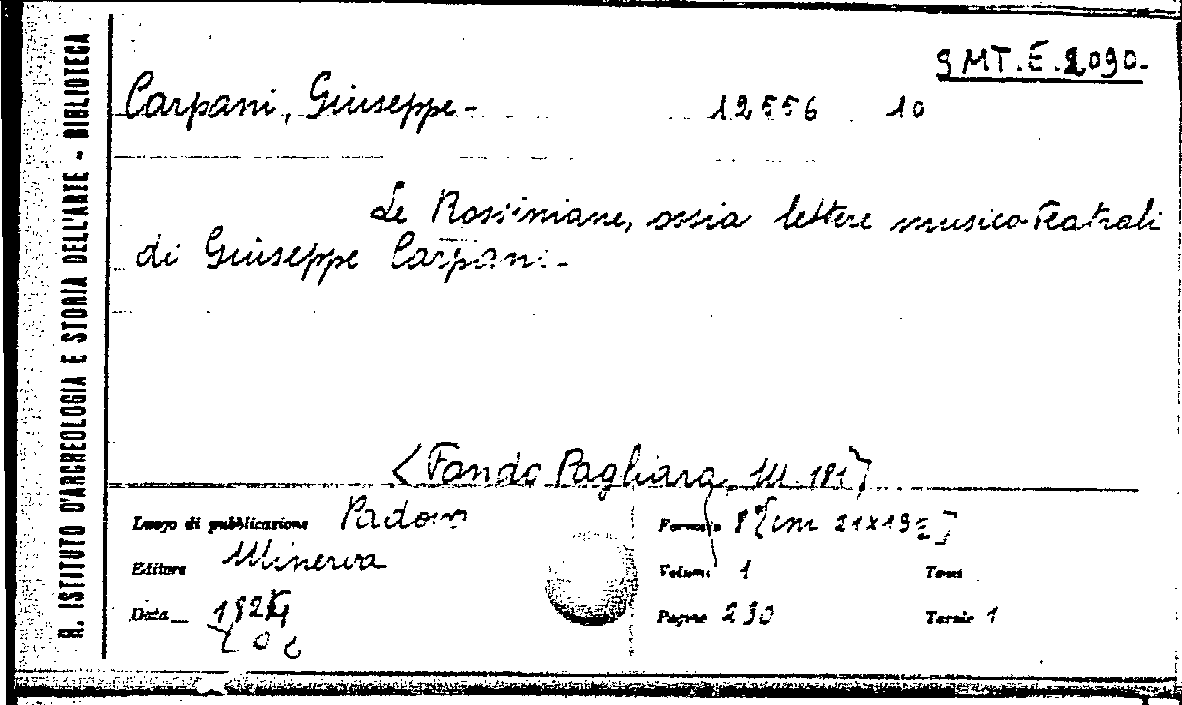 R. ISTITUTO D'ARCHEOLOGIA E STORIA DELL'ARTE - BIBLIOTECA
SMT.E.2090.
Carpani, Giuseppe - 12556 10
Le Rossiniane, ossia lettere musico-teatrali
di Giuseppe Carpani. -
<Fondo Pagliara, M. 181>
Luogo di pubblicazione Padova
Editore Minerva
Data 1824
Formato 8° [cm 21x13
Volumi 1 Tomi
Pagine 230 Tavole 1